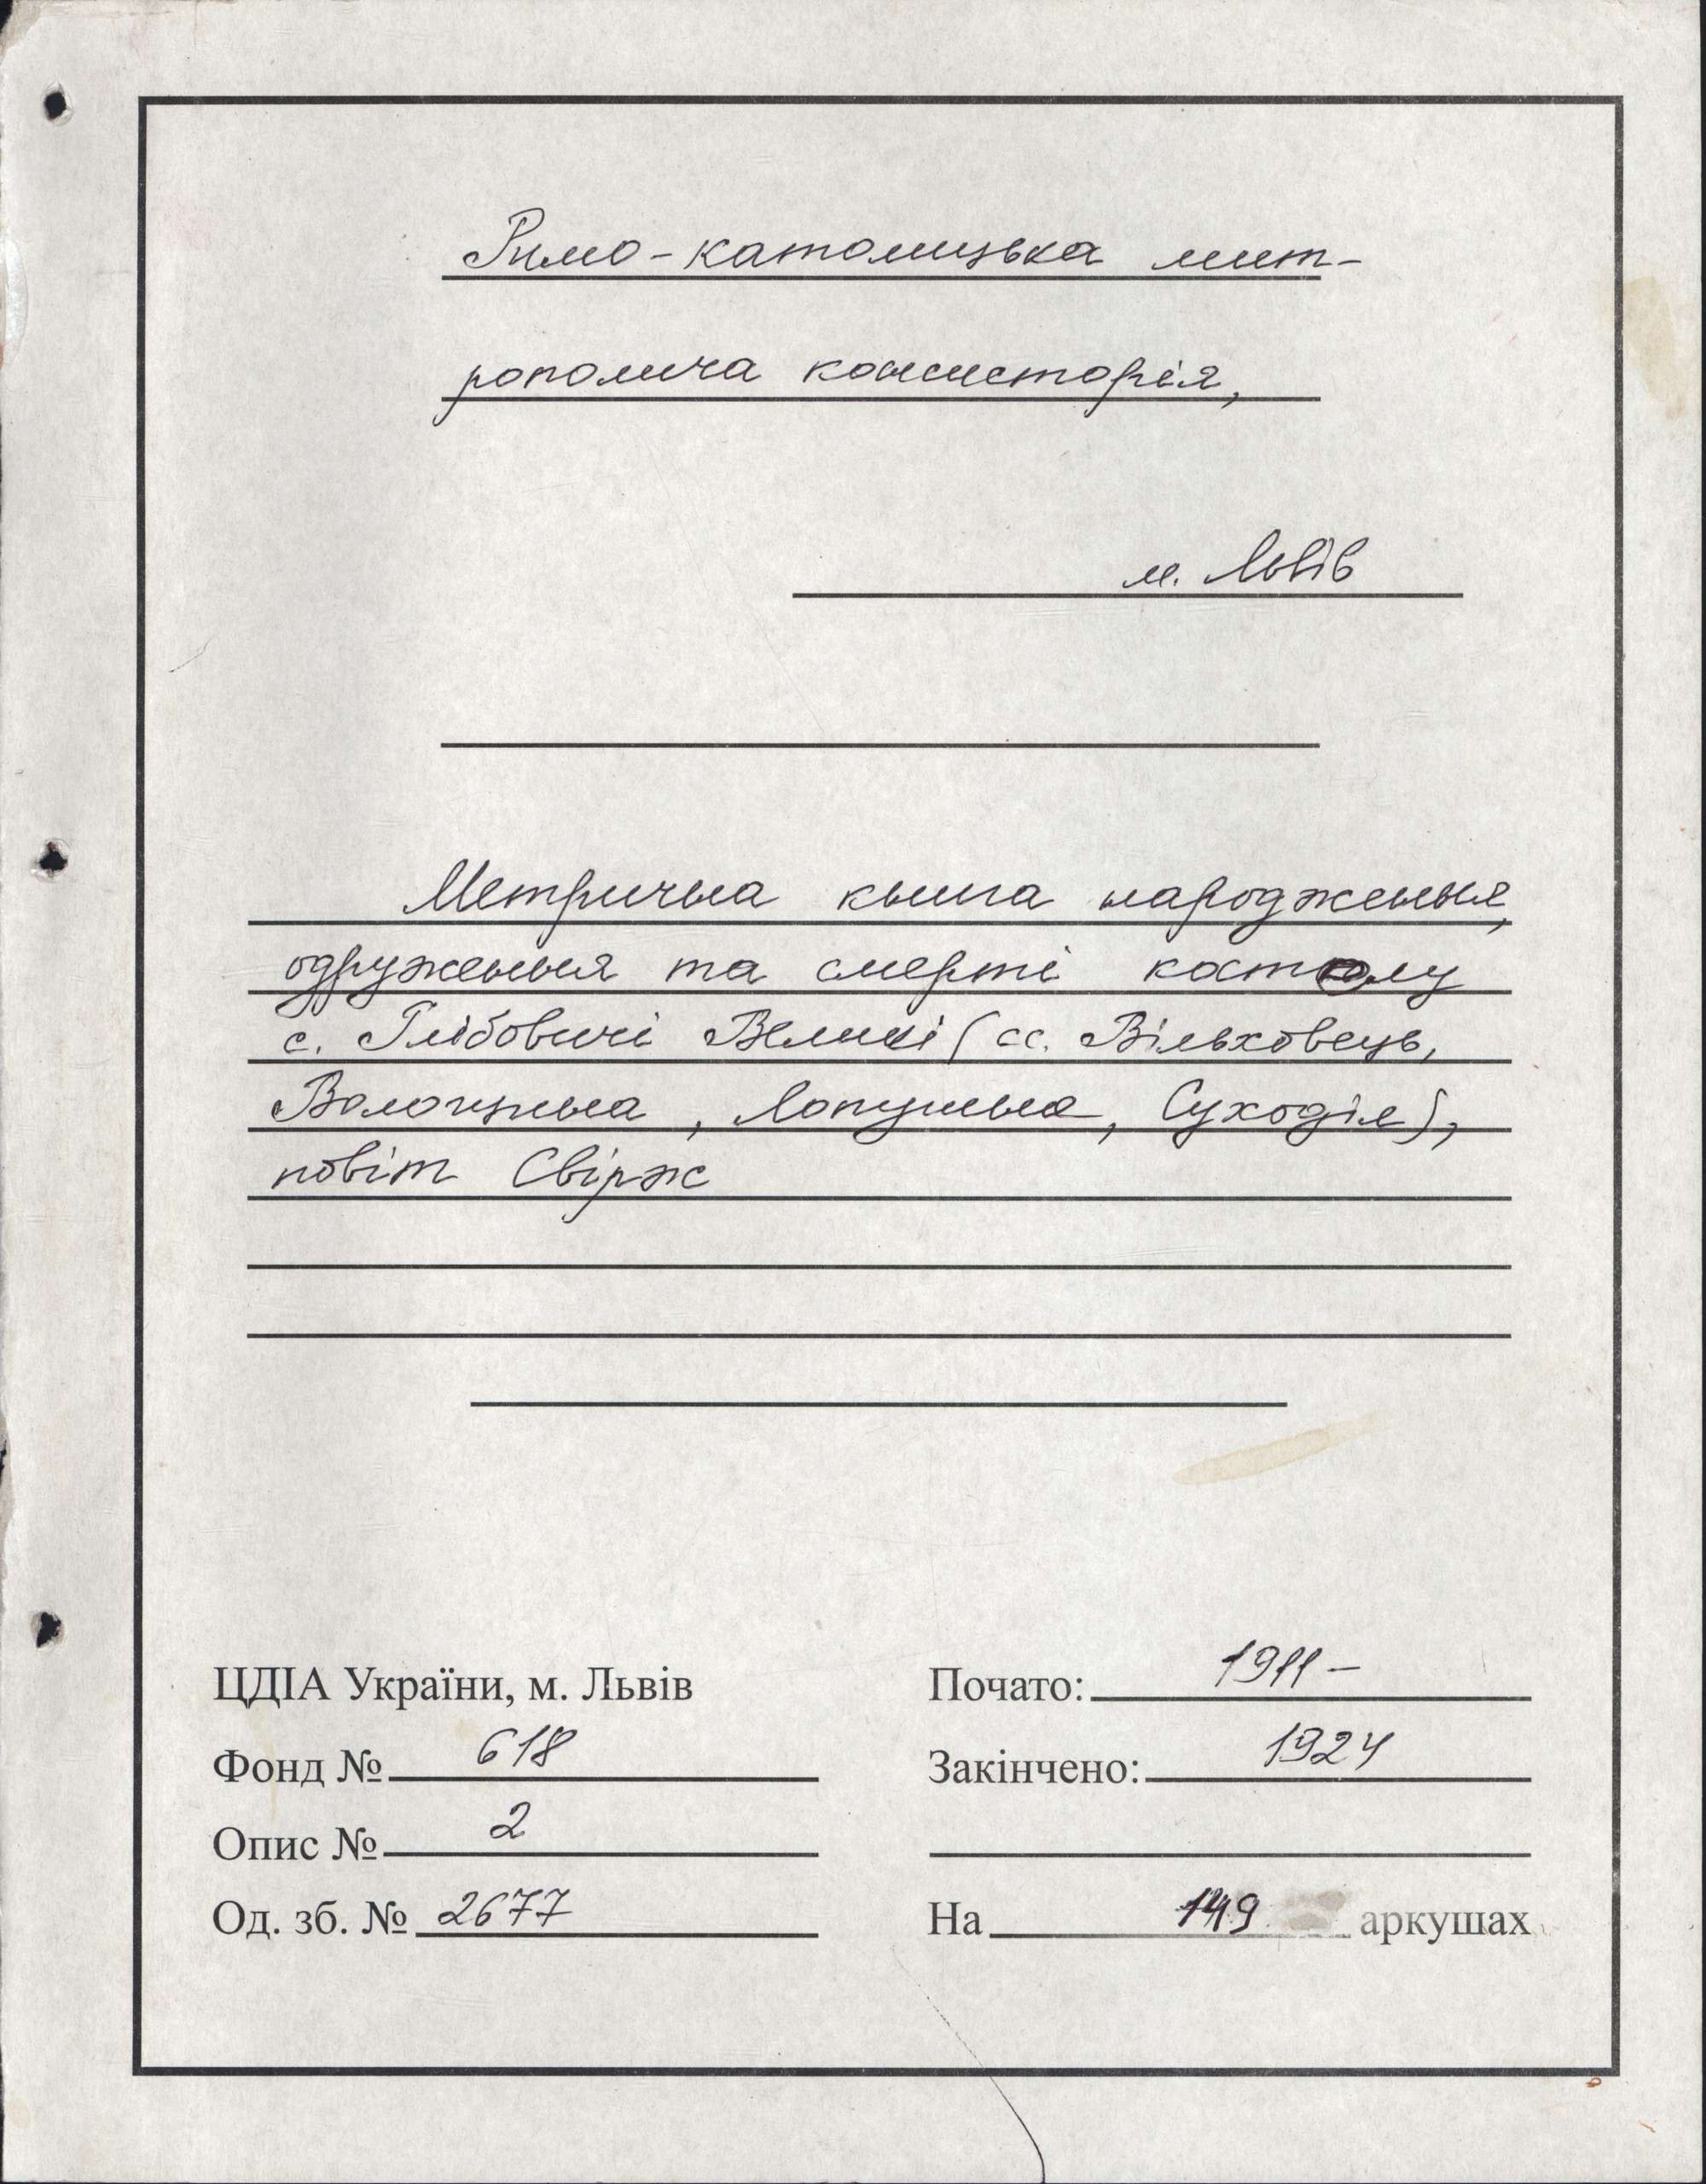 Римо-католицька мит-
рополича консисторія,
м. Львів
Метрична книга народження,
одруження та смерті костолу
с. Глібовичі Великі (сс. Вільховець,
Волощизна, Лопушна, Суходіл),
повіт Свірж
ЦДІА України, м. Львів
Почато: 1911 –
Фонд № 618
Закінчено: 1924
Опис № 2
Од. зб. № 2677
На 149 аркушах